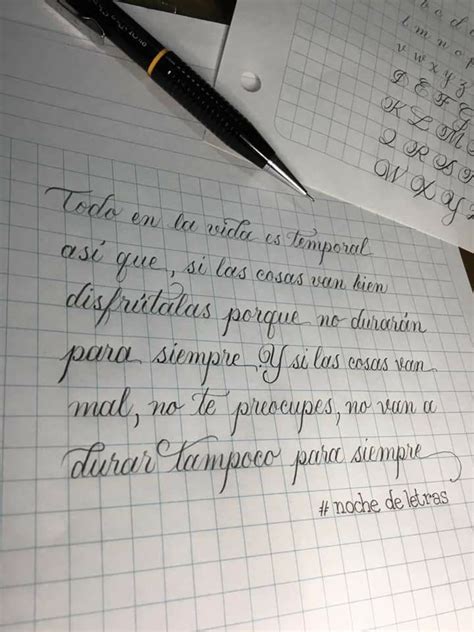 b c d
l m n o p
v w x y z
D E F G
K L M
Q R S
W X Y
Todo en la vida es temporal
así que, si las cosas van bien
disfrútalas porque no durarán
para siempre. Y si las cosas van
mal, no te preocupes, no van a
durar tampoco para siempre
# noche de letras